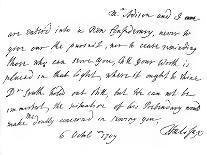 Mr. Addison and I are
are entred into a New Confederacy, never to
give over the pursuit, nor to cease reminding
Those who can serve you, till your Worth is
placed in that light, where it ought to shine
Dr South holds out still, but He can not be
immortal, the situation of his Prebendary would
make Me doubly concerned in serving you,
6 Octobr 1709
Halifax